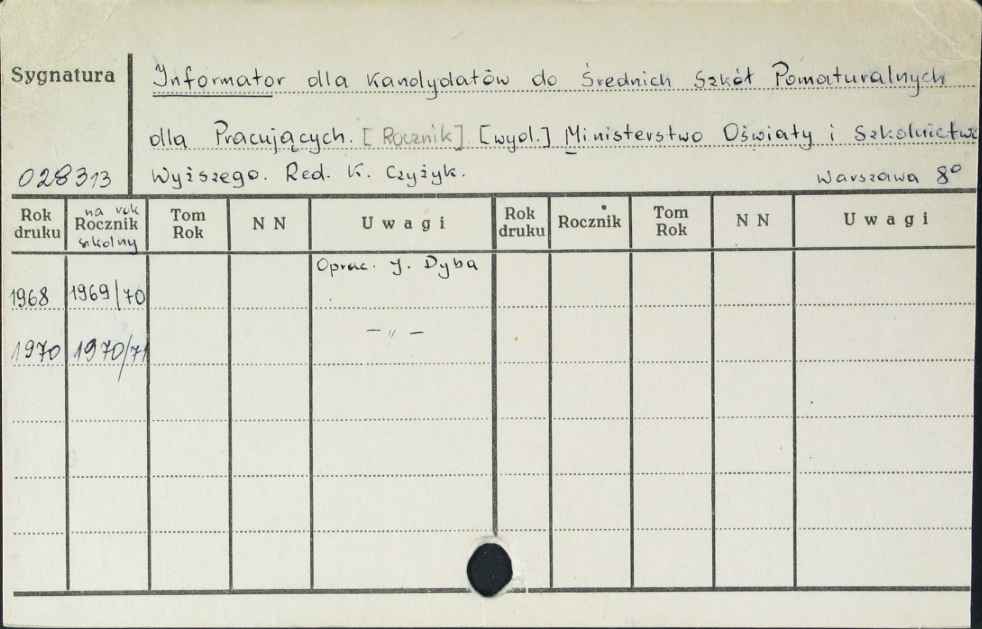 Sygnatura Informator dla Kandydatów do Średnich Szkół Pomaturalnych
dla Pracujących. [Rocznik] [wyd.] Ministerstwo Oświaty i Szkolnictwa
028313 Wyższego. Red. K. Czyżyk. Warszawa 8°
Rok druku na rok Rocznik szkolny Tom Rok N N Uwagi Rok druku Rocznik Tom Rok N N Uwagi
1968 1969/70 Oprac. J. Dyba
1970 1970/71 — „ —